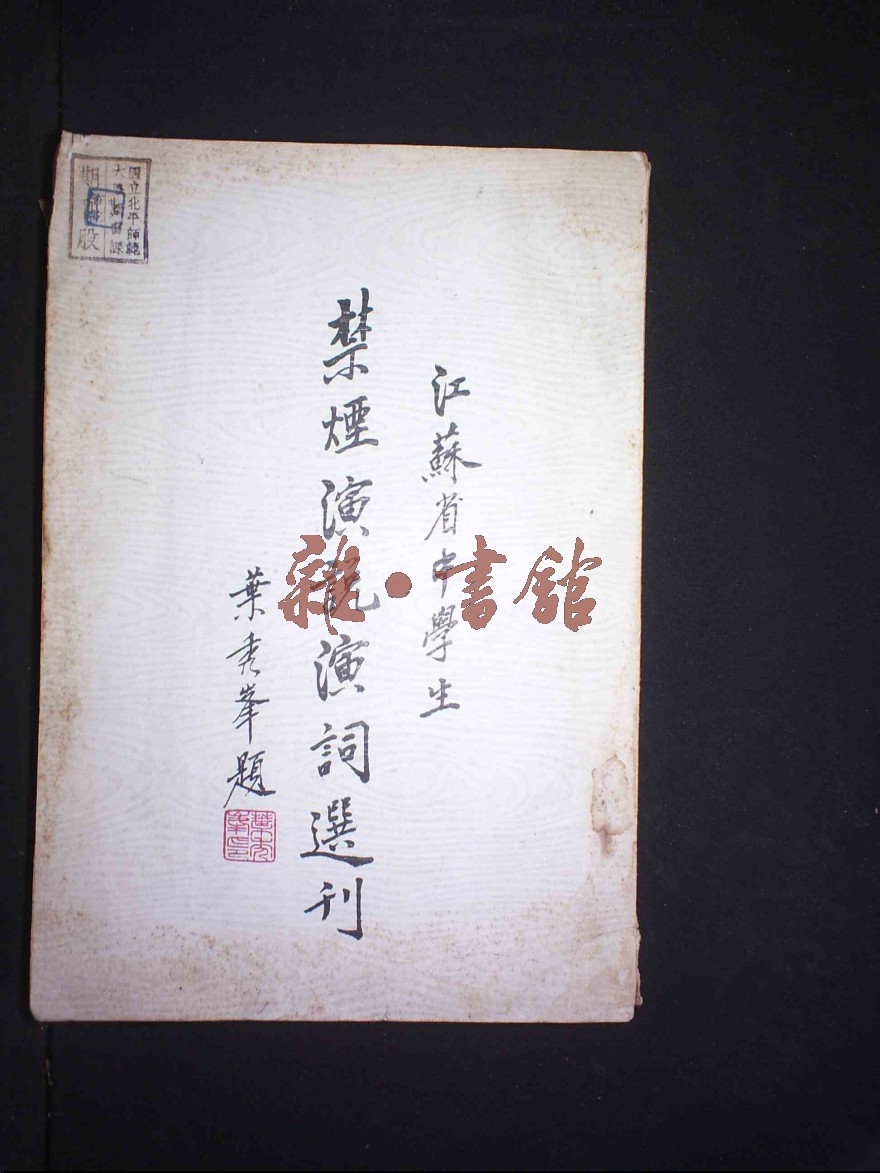 江蘇省中學生
禁煙演說演詞選刊
葉秀峯題
葉秀峯印
國立北平師範
大學圖書課
期刊股
雜·書館